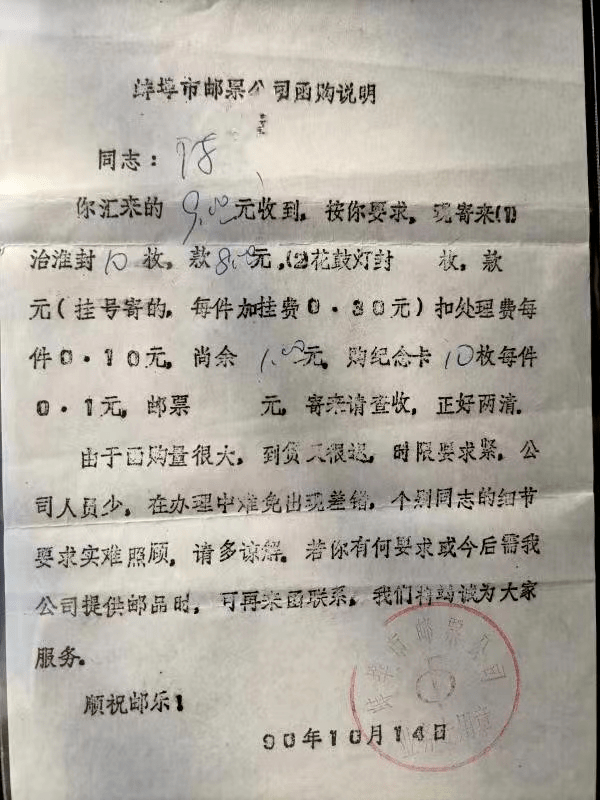 蚌埠市邮票公司函购说明
同志：
你汇来的9.00元收到，按你要求，现寄来(1)
治淮封10枚，款8.00元，(2)花鼓灯封 枚，款
元(挂号寄的，每件加挂费0.30元)扣处理费每
件0.10元，尚余1.00元，购纪念卡10枚每件
0.1元，邮票 元，寄来请查收，正好两清。
由于函购量很大，到货又很迟，时限要求紧，公
司人员少，在办理中难免出现差错，个别同志的细节
要求实难照顾，请多谅解。若你有何要求或今后需我
公司提供邮品时，可再来函联系，我们将竭诚为大家
服务。
顺祝邮乐！
90年10月14日
蚌埠市邮票公司